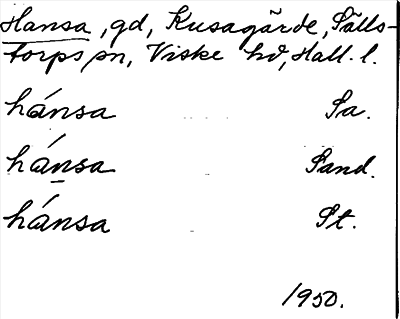 Hansa, gd, Kusagärde, Sälls-
torps sn, Viske hd, Hall. l.
hánsa Sa.
hánsa Sand.
hánsa St.
1950.